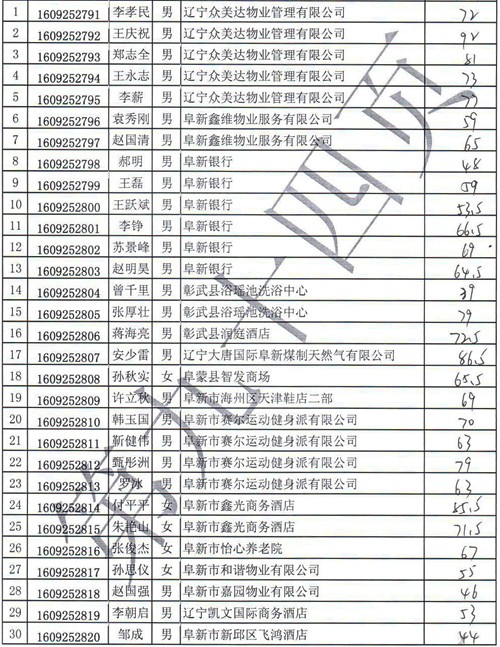 1 1609252791 李孝民 男 辽宁众美达物业管理有限公司 72
2 1609252792 王庆祝 男 辽宁众美达物业管理有限公司 92
3 1609252793 郑志全 男 辽宁众美达物业管理有限公司 81
4 1609252794 王永志 男 辽宁众美达物业管理有限公司 73
5 1609252795 李薪 男 辽宁众美达物业管理有限公司 77
6 1609252796 袁秀刚 男 阜新鑫维物业服务有限公司 59
7 1609252797 赵国清 男 阜新鑫维物业服务有限公司 65
8 1609252798 郝明 男 阜新银行 48
9 1609252799 王磊 男 阜新银行
10 1609252800 王跃斌 男 阜新银行 53.5
11 1609252801 李铮 男 阜新银行 66.5
12 1609252802 苏景峰 男 阜新银行 69
13 1609252803 赵明昊 男 阜新银行 64.5
14 1609252804 曾千里 男 彰武县浴瑶池洗浴中心 39
15 1609252805 张厚壮 男 彰武县浴瑶池洗浴中心 79
16 1609252806 蒋海亮 男 彰武县润庭酒店 72.5
17 1609252807 安少雷 男 辽宁大唐国际阜新煤制天然气有限公司 86.5
18 1609252808 孙秋实 女 阜蒙县智发商场 65.5
19 1609252809 许立秋 男 阜新市海州区天津鞋店二部 69
20 1609252810 韩玉国 男 阜新市赛尔运动健身派有限公司 70
21 1609252811 靳健伟 男 阜新市赛尔运动健身派有限公司 63
22 1609252812 甄彤洲 男 阜新市赛尔运动健身派有限公司 79
23 1609252813 罗冰 男 阜新市赛尔运动健身派有限公司 63
24 1609252814 付平平 女 阜新市鑫光商务酒店
25 1609252815 朱艳山 女 阜新市鑫光商务酒店 71.5
26 1609252816 张俊杰 女 阜新市怡心养老院 67
27 1609252817 孙思仪 女 阜新市和谐物业有限公司 55
28 1609252818 赵国强 男 阜新市嘉园物业有限公司 46
29 1609252819 李朝启 男 辽宁凯文国际商务酒店 53
30 1609252820 邹成 男 阜新市新邱区飞鸿酒店 44
第九十四页